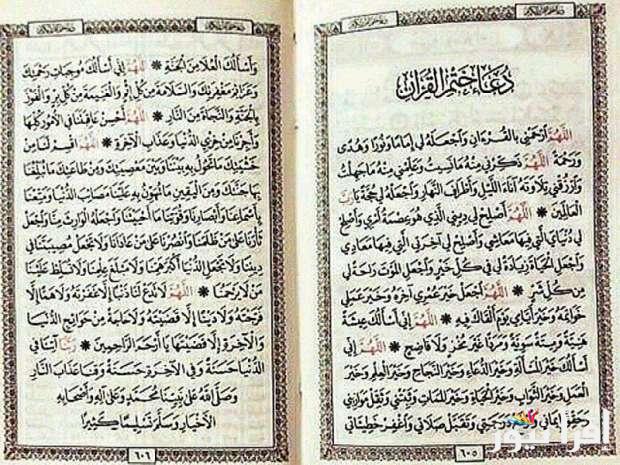 دُعَاءُ خَتْمِ الْقُرْآنِ
اللَّهُمَّ ارْحَمْنِي بِالْقُرْءَانِ وَاجْعَلْهُ لِي إِمَامًا وَنُورًا وَهُدًى
وَرَحْمَةً اللَّهُمَّ ذَكِّرْنِي مِنْهُ مَا نَسِيتُ وَعَلِّمْنِي مِنْهُ مَا جَهِلْتُ
وَارْزُقْنِي تِلَاوَتَهُ آنَاءَ اللَّيْلِ وَأَطْرَافَ النَّهَارِ وَاجْعَلْهُ لِي حُجَّةً يَا رَبَّ
الْعَالَمِينَ * اللَّهُمَّ أَصْلِحْ لِي دِينِي الَّذِي هُوَ عِصْمَةُ أَمْرِي وَأَصْلِحْ
لِي دُنْيَايَ الَّتِي فِيهَا مَعَاشِي وَأَصْلِحْ لِي آخِرَتِي الَّتِي فِيهَا مَعَادِي
وَاجْعَلِ الْحَيَاةَ زِيَادَةً لِي فِي كُلِّ خَيْرٍ وَاجْعَلِ الْمَوْتَ رَاحَةً لِي
مِنْ كُلِّ شَرٍّ * اللَّهُمَّ اجْعَلْ خَيْرَ عُمْرِي آخِرَهُ وَخَيْرَ عَمَلِي
خَوَاتِمَهُ وَخَيْرَ أَيَّامِي يَوْمَ أَلْقَاكَ فِيهِ * اللَّهُمَّ إِنِّي أَسْأَلُكَ عِيشَةً
هَنِيَّةً وَمِيتَةً سَوِيَّةً وَمَرَدًّا غَيْرَ مُخْزٍ وَلَا فَاضِحٍ * اللَّهُمَّ إِنِّي
أَسْأَلُكَ خَيْرَ الْمَسْأَلَةِ وَخَيْرَ الدُّعَاءِ وَخَيْرَ النَّجَاحِ وَخَيْرَ الْعِلْمِ وَخَيْرَ
الْعَمَلِ وَخَيْرَ الثَّوَابِ وَخَيْرَ الْحَيَاةِ وَخَيْرَ الْمَمَاتِ وَثَبِّتْنِي وَثَقِّلْ مَوَازِينِي
وَحَقِّقْ إِيمَانِي وَارْفَعْ دَرَجَتِي وَتَقَبَّلْ صَلَاتِي وَاغْفِرْ خَطِيئَاتِي
٦٠٥
اقرأ نيوز
وَأَسْأَلُكَ الْعُلَا مِنَ الْجَنَّةِ * اللَّهُمَّ إِنِّي أَسْأَلُكَ مُوجِبَاتِ رَحْمَتِكَ
وَعَزَائِمَ مَغْفِرَتِكَ وَالسَّلَامَةَ مِنْ كُلِّ إِثْمٍ وَالْغَنِيمَةَ مِنْ كُلِّ بِرٍّ وَالْفَوْزَ
بِالْجَنَّةِ وَالنَّجَاةَ مِنَ النَّارِ * اللَّهُمَّ أَحْسِنْ عَاقِبَتَنَا فِي الْأُمُورِ كُلِّهَا
وَأَجِرْنَا مِنْ خِزْيِ الدُّنْيَا وَعَذَابِ الْآخِرَةِ * اللَّهُمَّ اقْسِمْ لَنَا مِنْ
خَشْيَتِكَ مَا تَحُولُ بِهِ بَيْنَنَا وَبَيْنَ مَعْصِيَتِكَ وَمِنْ طَاعَتِكَ مَا تُبَلِّغُنَا
بِهَا جَنَّتَكَ وَمِنَ الْيَقِينِ مَا تُهَوِّنُ بِهِ عَلَيْنَا مَصَائِبَ الدُّنْيَا وَمَتِّعْنَا
بِأَسْمَاعِنَا وَأَبْصَارِنَا وَقُوَّتِنَا مَا أَحْيَيْتَنَا وَاجْعَلْهُ الْوَارِثَ مِنَّا وَاجْعَلْ
ثَأْرَنَا عَلَى مَنْ ظَلَمَنَا وَانْصُرْنَا عَلَى مَنْ عَادَانَا وَلَا تَجْعَلْ مُصِيبَتَنَا فِي
دِينِنَا وَلَا تَجْعَلِ الدُّنْيَا أَكْبَرَ هَمِّنَا وَلَا مَبْلَغَ عِلْمِنَا وَلَا تُسَلِّطْ عَلَيْنَا
مَنْ لَا يَرْحَمُنَا * اللَّهُمَّ لَا تَدَعْ لَنَا ذَنْبًا إِلَّا غَفَرْتَهُ وَلَا هَمًّا إِلَّا
فَرَّجْتَهُ وَلَا دَيْنًا إِلَّا قَضَيْتَهُ وَلَا حَاجَةً مِنْ حَوَائِجِ الدُّنْيَا
وَالْآخِرَةِ إِلَّا قَضَيْتَهَا يَا أَرْحَمَ الرَّاحِمِينَ * رَبَّنَا آتِنَا فِي
الدُّنْيَا حَسَنَةً وَفِي الْآخِرَةِ حَسَنَةً وَقِنَا عَذَابَ النَّارِ
وَصَلَّى اللَّهُ عَلَى نَبِيِّنَا مُحَمَّدٍ وَعَلَى آلِهِ وَأَصْحَابِهِ
الْأَخْيَارِ وَسَلَّمَ تَسْلِيمًا كَثِيرًا
٦٠٦